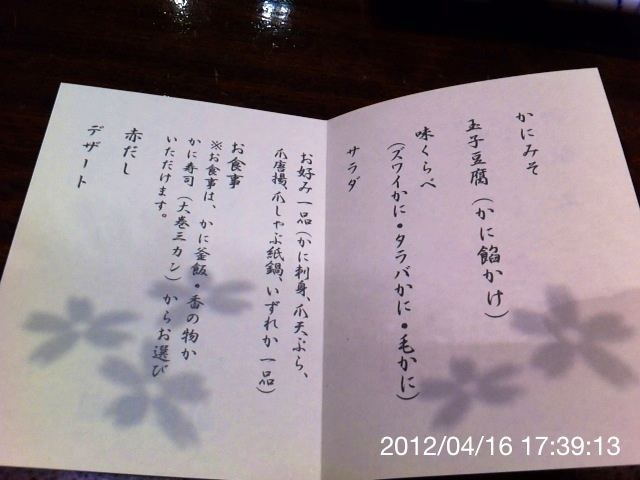 かにみそ
玉子豆腐（かに餡かけ）
味くらべ
（ズワイかに・タラバかに・毛かに）
サラダ
お好み一品（かに刺身、爪天ぷら、
爪唐揚、爪しゃぶ紙鍋、いずれか一品）
お食事
※お食事は、かに釜飯・香の物か
かに寿司（大巻三カン）からお選び
いただけます。
赤だし
デザート
2012/04/16 17:39:13